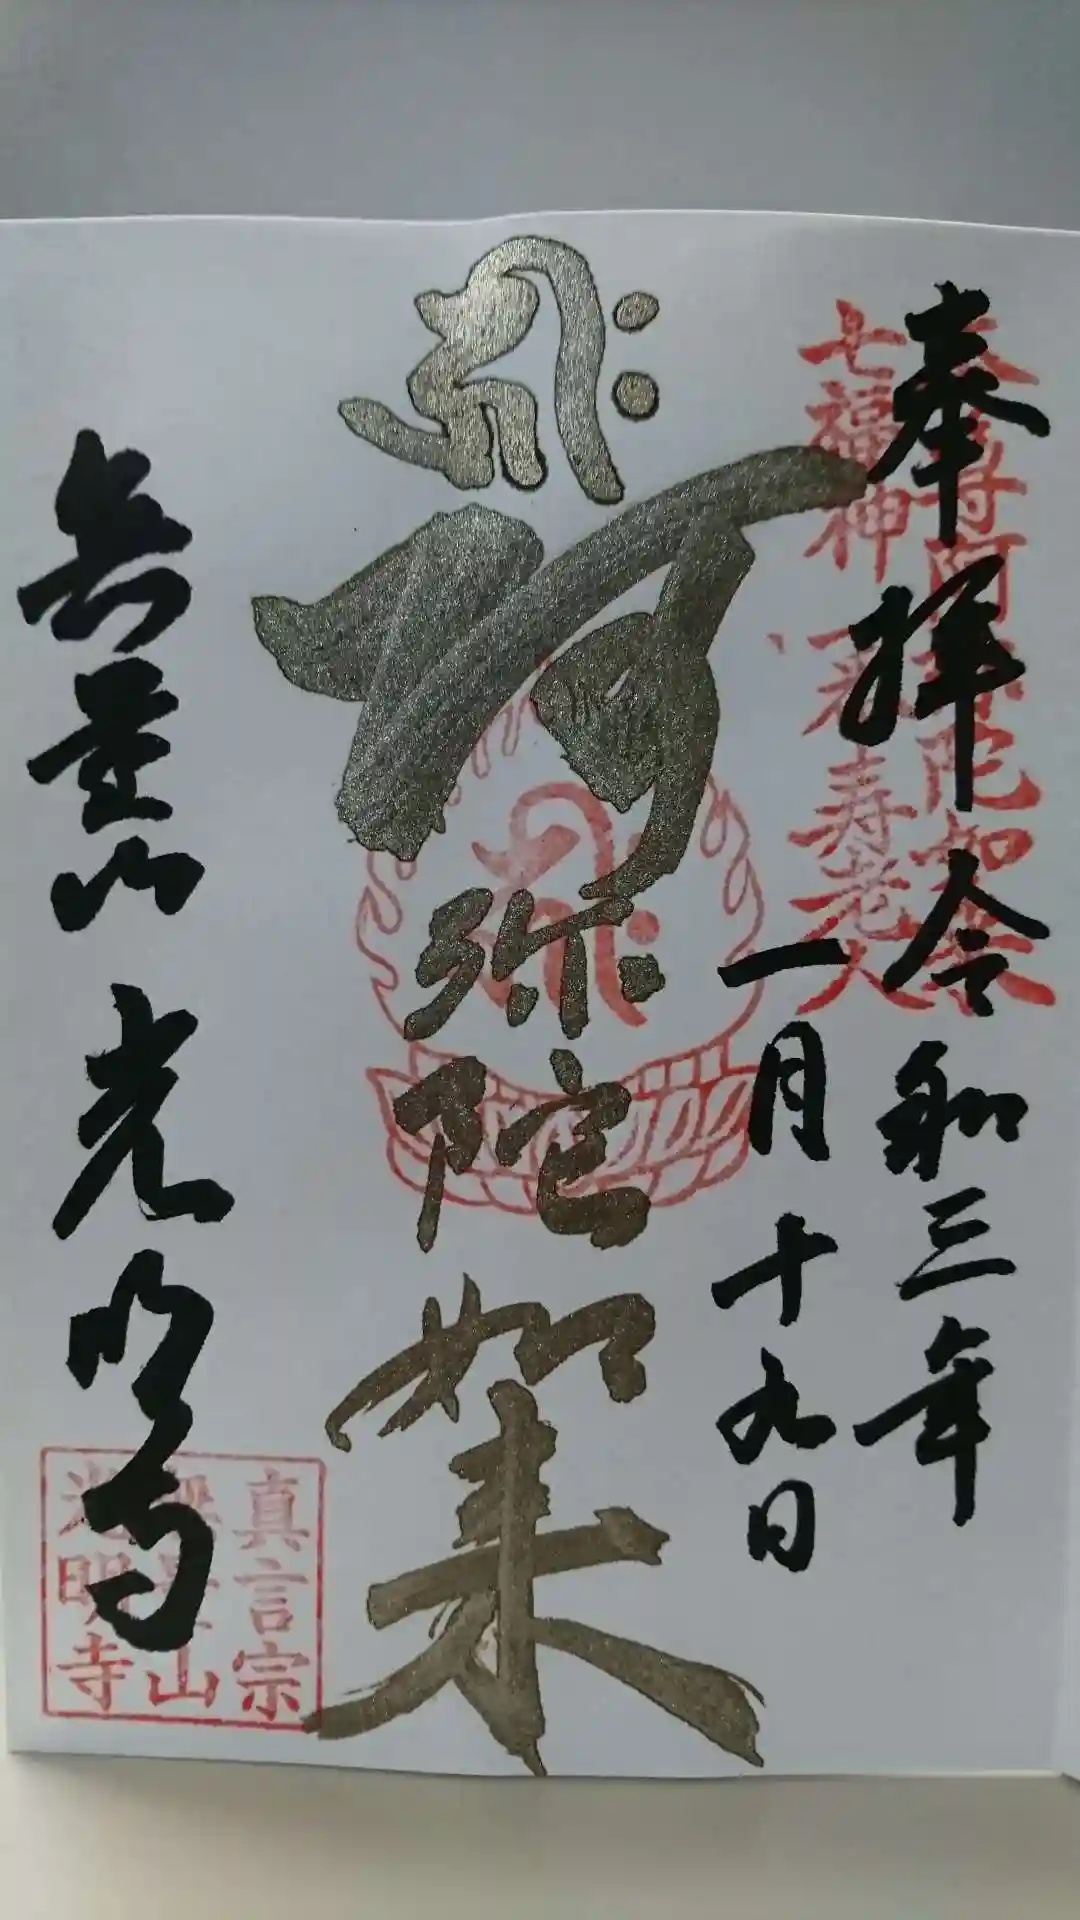 奉拝 令和三年
一月十九日
本尊阿弥陀如来
七福神 寿老人
𑖮𑖿𑖨𑖱𑖾
阿弥陀如来
𑖮𑖿𑖨𑖱𑖾
無量山 光明寺
真言宗
無量山
光明寺